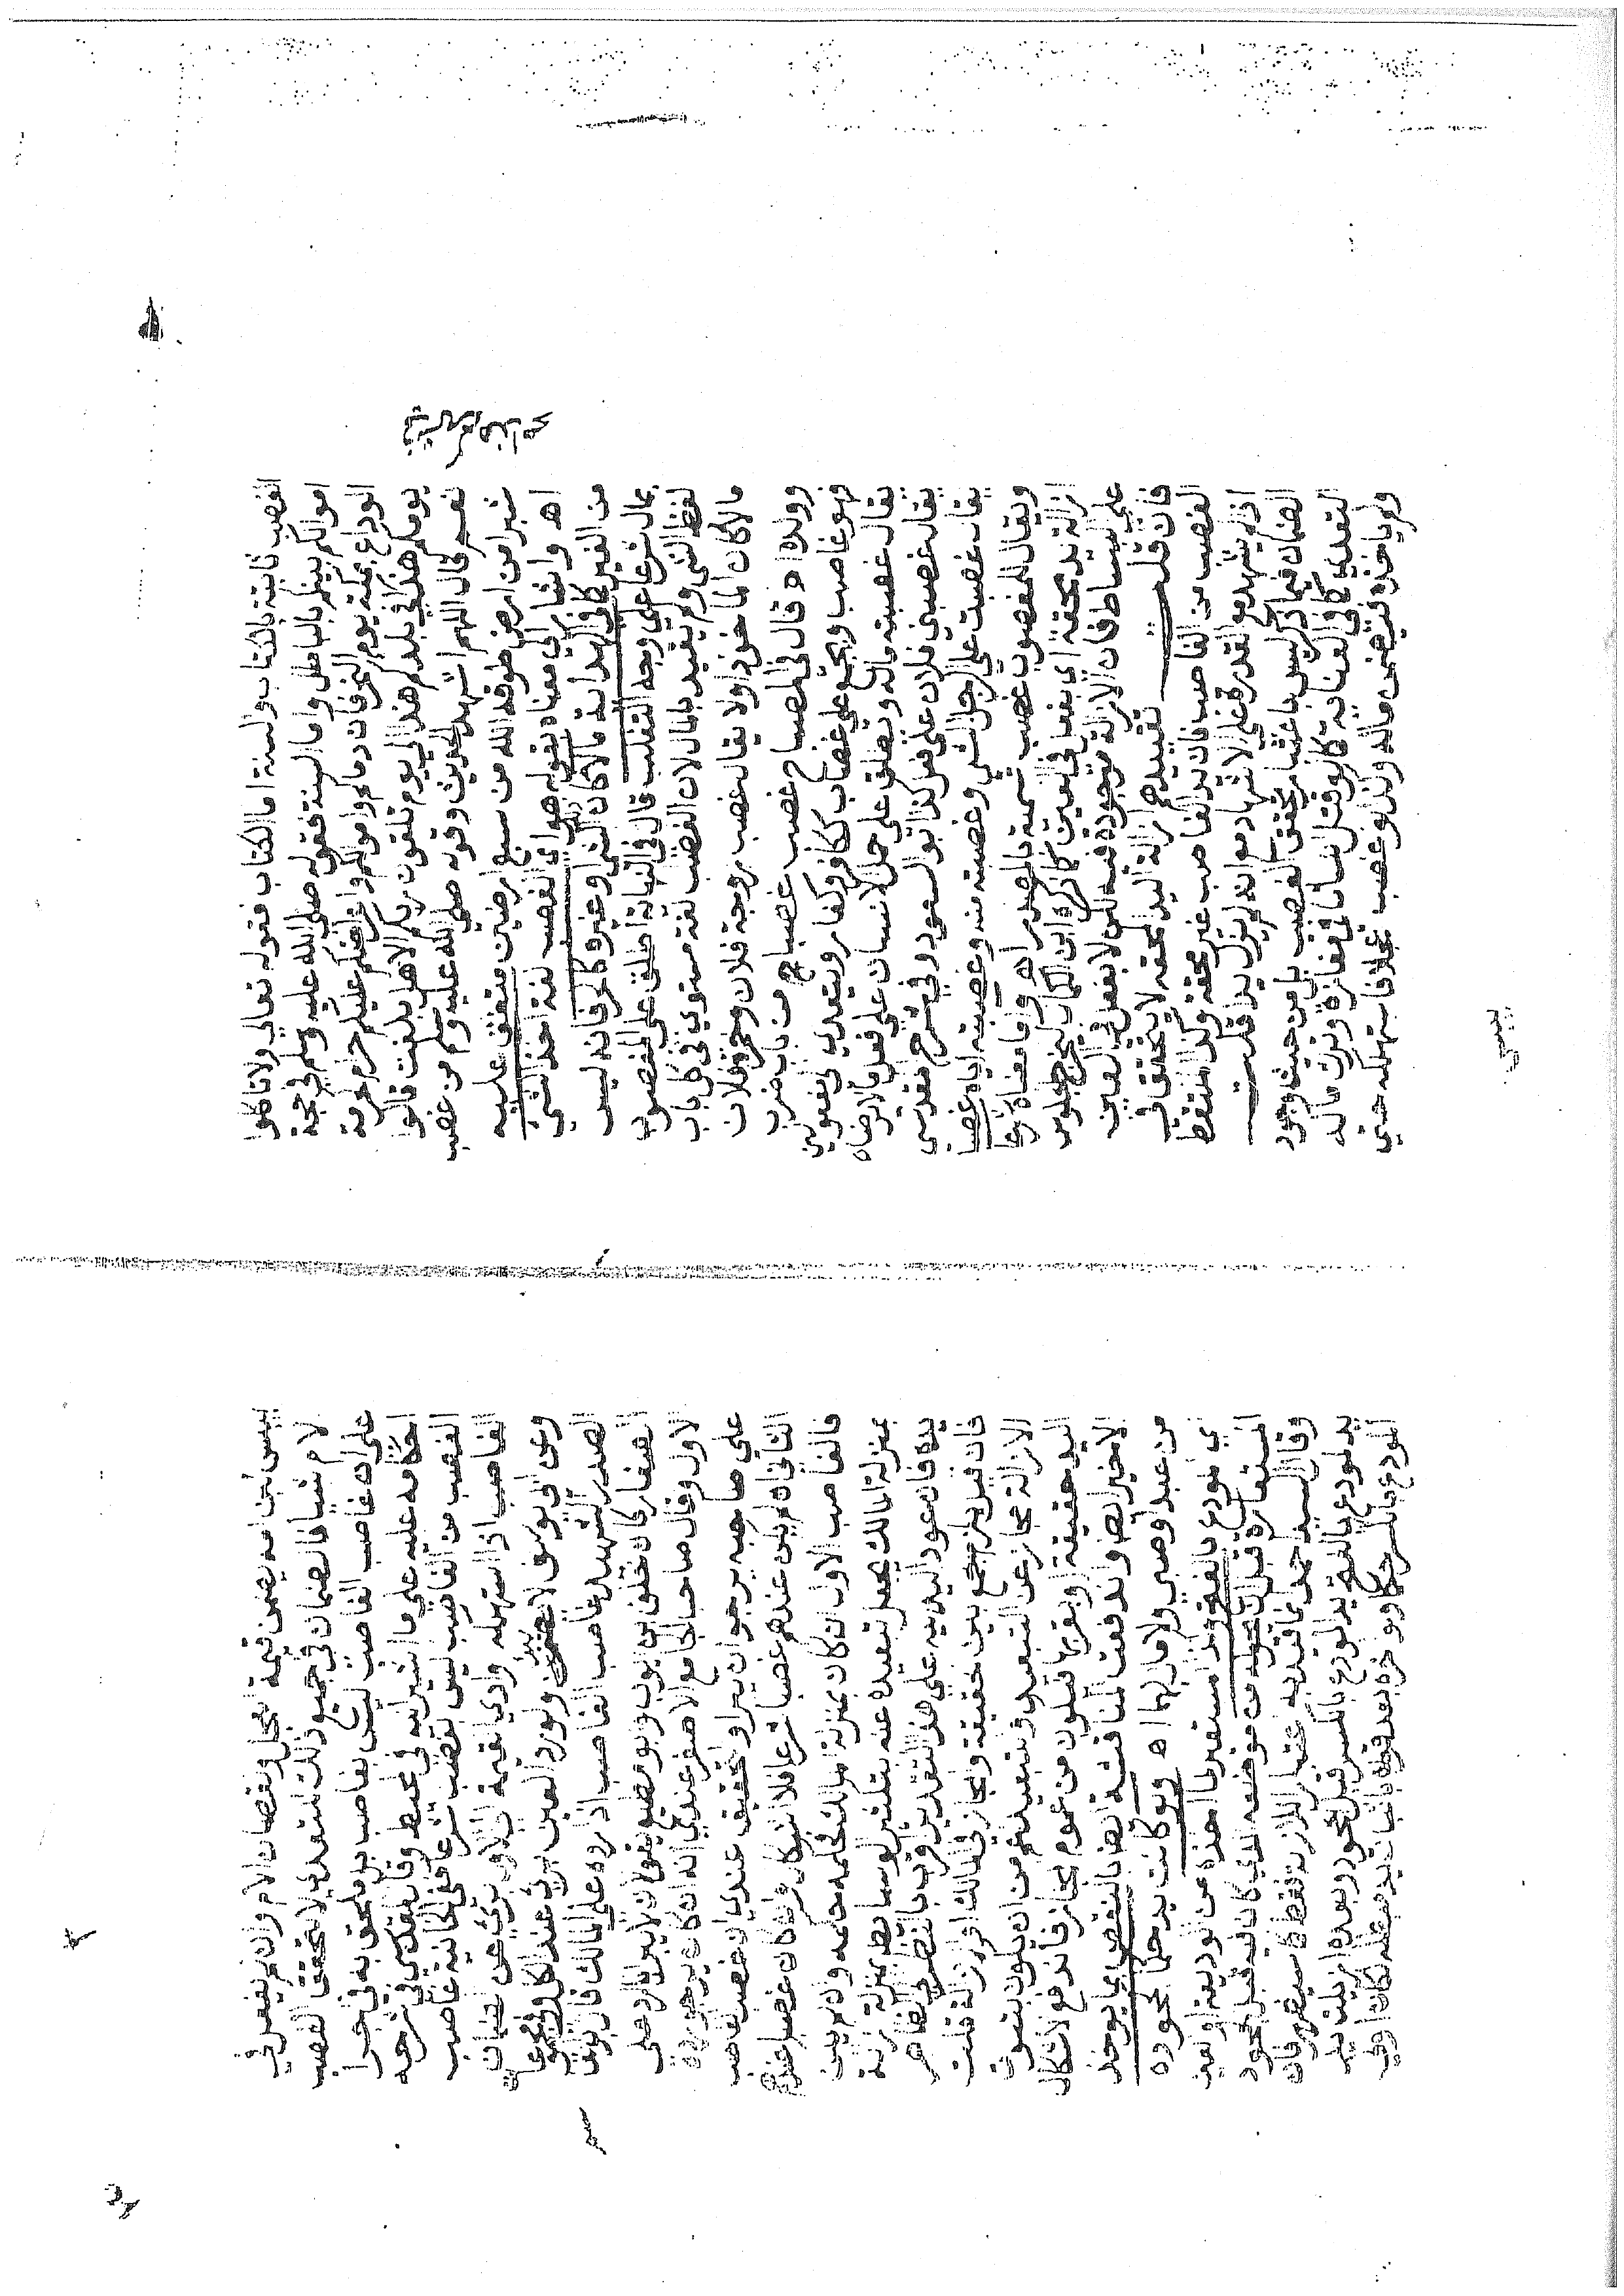 الغصب ثابتة بالكتاب والسنة اما الكتاب فقوله تعالى ولا تاكلوا
اموالكم بينكم بالباطل واما السنة فقوله صلى الله عليه وسلم في حجة
الوداع بمكة يوم النحر فان دماءكم واموالكم واعراضكم عليكم حرام كحرمة
يومكم هذا في بلدكم هذا الى يوم تلقون ربكم الا هل بلغت قالوا
نعم قال اللهم اشهد الحديث وقوله صلى الله عليه وسلم من غصب
شبرا من ارض طوقه الله من سبع ارضين متفق عليه
اه واشار الى معناه بقوله هو اي الغصب لغة اخذ الشي
من الغير كما في الهداية مالا كان الشي او غيره كالحر فانه ليس
بمال شرعا على وجه التغلب قال في النهاية اطلق على المغصوب
لفظ الشي ولم يقيد بالمال لان الغصب لغة مستوي في كل باب
مالا كان الماخوذ او لا يقال غصب زوجة فلان وخمر فلان
وولده اه قال في المصباح غصب غصبا من باب ضرب
فهو غاصب ويجمع على غصاب ككافر وكفار ويتعدى لمفعولين
يقال غصبته ماله ويطلق على حمل الانسان على فعل ما لا يرضاه
يقال غصبني فلان على فعل كذا ابو السعود وفي شرح مقدسي
يقال غصبت على الرجل الشي وغصبته منه وغصبته اياه غصبا
ويقال للمغصوب غصب تسمية بالمصدر اه واما معناه شرعا
ازالة يد محقة اي بفعل في العين كما ذكره ابن الكمال ليخرج الجلوس
على البساط فان الازالة موجودة فيه لكن لا بفعل في العين
فان قلت تقييدهم ازالة اليد المحقة لا يتحقق في
الغصب من الغاصب فان يد الغاصب غير محقة وكذا الملتقط
اذا لم يشهد مع القدرة على الاشهاد مع انه لم يزل يدا قلت
الضمان فيما ذكر ليس باعتبار تحقق الغصب بل من حيث وجود
التعدي كما في العناية كما لو قتل انسانا في مفازة وترك ماله
ولم ياخذه فيضمن ماله وكذا لو غصب عجلا فاستهلكه حتى
يبس لبن امه يضمن قيمة العجل ونقصان الام وان لم يفعل في
الام شيا فالضمان في جميع ذلك للتعدي لا لتحقق الغصب
على ان غاصب الغاصب ليس بغاصب بل ملحق به في اجرا
احكامه عليه على ما اشير اليه في المحيط وقال المقدسي في شرحه
الغصب من الغاصب ليس بغصب شرعا ففي الخانية غاصب
الغاصب اذا استهلكه وادى القيمة الى الاول برئ عن الضمان
وعن ابي يوسف لا يبرا ولو رد العين برئ عند الكل وفي
الصدر الشهيد غاصب الغاصب اذا رده على المالك قال
الصفار كان خلف بن ايوب وابو مطيع يقولان لا يبرا للرد على
الاول وقال صاحب الجامع الاصغر عندي انه ان كان يرجو رده
على صاحبه يرجو ان يبرا والتحقيق عندي ان غصب الغاصب
الثاني ان لم يكن عندهم غصبا شرعا فلا اشكال وان كان غصبا عندهم
فالغاصب الاول ان كان بمنزلة المالك فحكمه حكمه وان لم يكن
بمنزلة المالك يجعل تبعيده عنه بتكثير الوسايط بمنزلة ازالة
يده فان عود اليد اليه على هذا التقدير اقرب بالنظر الى الظاهر
فان قيل يلزم الجمع بين حقيقة والمجاز في ازالة قلت
الازالة مجاز عن التبعيد والتبعيد اعم من ان يكون بتفويت
اليد حقيقة او بقربها فيكون من عموم المجاز فاندفع الاشكال
الاخير ايضا واندفعت المناقشة ايضا بالنقض بما يوخذ
من عبد او صبي ولا مال لهما اه ولو كانت يد حكما لجحوده
اي المودع بالفتح اذا اخذه من الوديعة او العين
المستعارة قبل ان يحوله من موضعه الذي كان فيه قبل الجحود
وقال السيد احمد انما قيد به
يد المودع بالفتح يد المودع بالكسر قبل الجحود وبعده ازيلت يد
المودع بالكسر حكما ولو اخره بعد قوله باثبات يد مبطلة لكان اولى